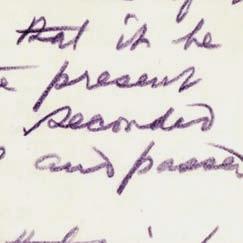 that it be
present
seconded
and passed